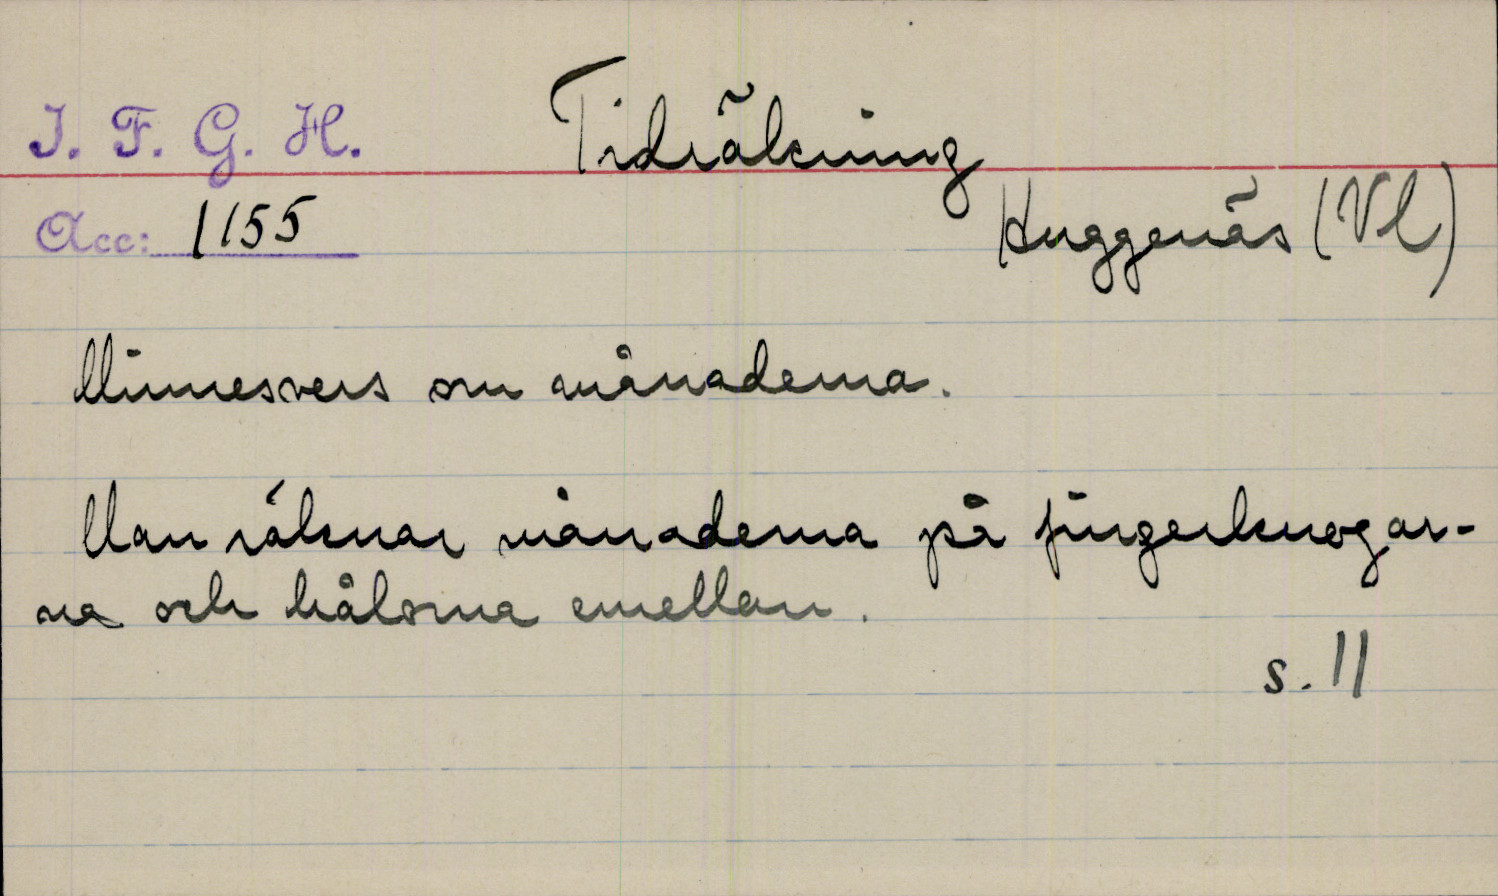 I. F. G. H.
Tidräkning
Acc: 1155
Huggenäs (Vl)
Minnesvers om månaderna.
Man räknar månaderna på fingerknogar-
na och hålorna emellan.
s. 11